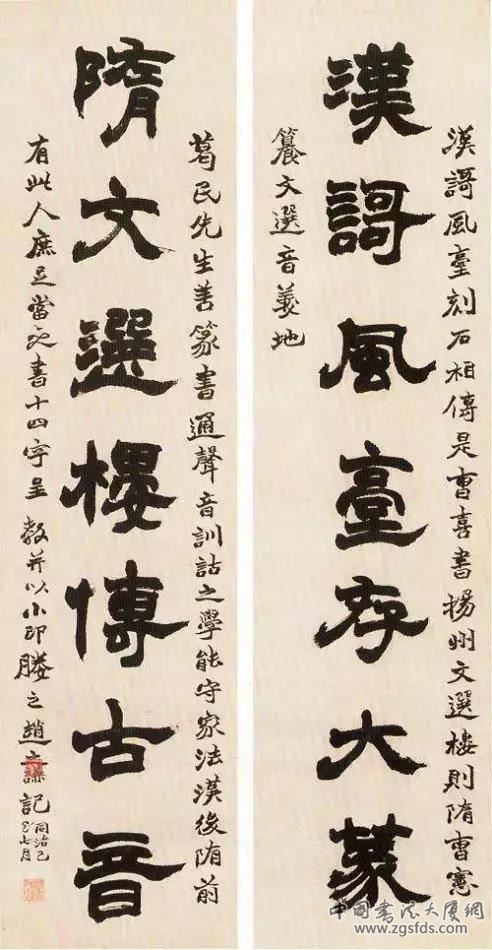 漢謌風臺刻石相傳是曹喜書揚州文選樓則隋曹憲
漢謌風臺存大篆
籑文選音義地
葛民先生善篆書通聲音訓詁之學能守家法漢後隋前
隋文選樓傳古音
有此人庶足當之書十四字呈教并以小印媵之趙之謙記
同治己
巳七月
中國書法大厦網
www.zgsfds.com